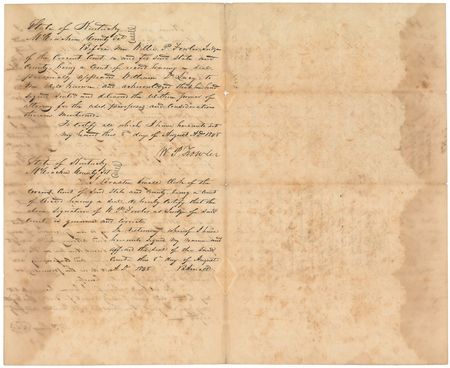 State of Kentucky
McCracken County Sct
Before me Willis P. Fowler Judge
of the Circuit Court in and for said State and
County being a Court of record having a seal
personally appeared William D. Lacy to
me well known and acknowledged that he had
signed sealed and delivered the within power of
attorney for the uses purposes and consideration
therein mentioned
To certify all which I have hereunto set
my hand this 8 day of August AD 1848
W. P. Fowler
State of Kentucky
McCracken County Sct
I Braxton Small Clerk of the
Circuit Court of said State and County being a Court
of Record having a seal do hereby certify that the
above signature of W. P. Fowler as Judge of said
Court is genuine and
In testimony whereof I have
hereunto signed my name and
affixed the seal of the said
Court this 8 day of August
A.D. 1848